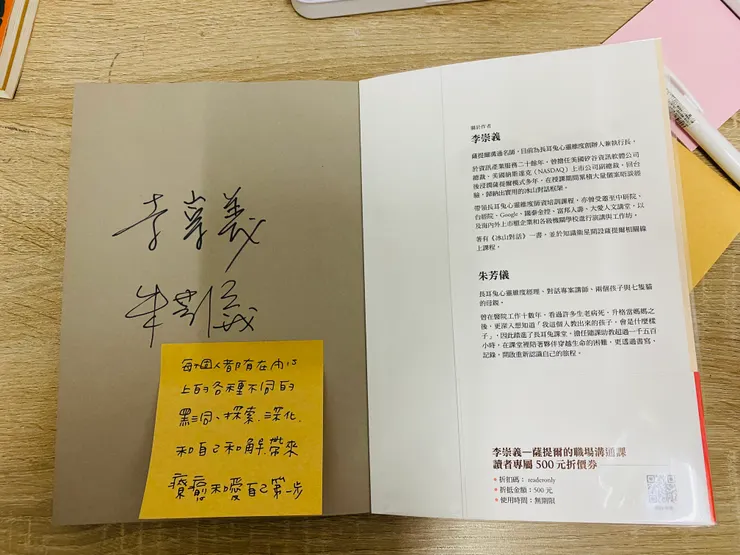 李崇義
朱芳儀
每個人都有在內心
上的各種不同的
黑洞、探索、深化、
和自己和解、帶來
療癒和愛自己第一步
關於作者
李崇義
薩提爾溝通名師，目前為長耳兔心靈維度創辦人兼執行長。
於資訊產業服務二十餘年，曾擔任美國矽谷資訊軟體公司
總裁、美國納斯達克（NASDAQ）上市公司副總裁。回台
後浸潤薩提爾模式多年，在授課期間累積大量個案晤談經
驗，歸納出實用的冰山對話框架。
帶領長耳兔心靈維度師資培訓課程，亦曾受邀至中研院、
台經院、Google、國泰金控、富邦人壽、大愛人文講堂，以
及海內外上市櫃企業和各級機關學校進行演講與工作坊。
著有《冰山對話》一書，並於知識衛星開設薩提爾相關線
上課程。
朱芳儀
長耳兔心靈維度經理、對話專案講師、兩個孩子與七隻貓
的母親。
曾在醫院工作十數年，看過許多生老病死，升格當媽媽之
後，更深入想知道「我這個人教出來的孩子，會是什麼樣
子」，因此踏進了長耳兔課堂。擔任隨課助教超過一千五百
小時，在課堂裡陪著夥伴穿越生命的困難，更透過書寫、
記錄，開啟重新認識自己的旅程。
李崇義—薩提爾的職場溝通課
讀者專屬 500 元折價券
折扣碼： readeronly
折抵金額：500 元
使用時間：無期限